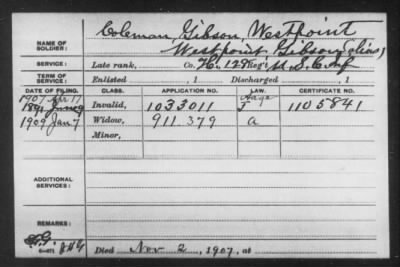 Coleman, Gibson, Westpoint
NAME OF SOLDIER: Westpoint Gibson (alias)
SERVICE: Late rank, Co. H. 127 Reg't U.S.C. Inf
TERM OF SERVICE: Enlisted , 1 Discharged , 1
DATE OF FILING. CLASS. APPLICATION NO. LAW. CERTIFICATE NO.
1907 Apr 17
1891 Invalid, 1033011 J 1105841
1909 Jan 7 Widow, 911 379 a
Minor,
ADDITIONAL SERVICES:
REMARKS:
Died Nov 2, 1907, at